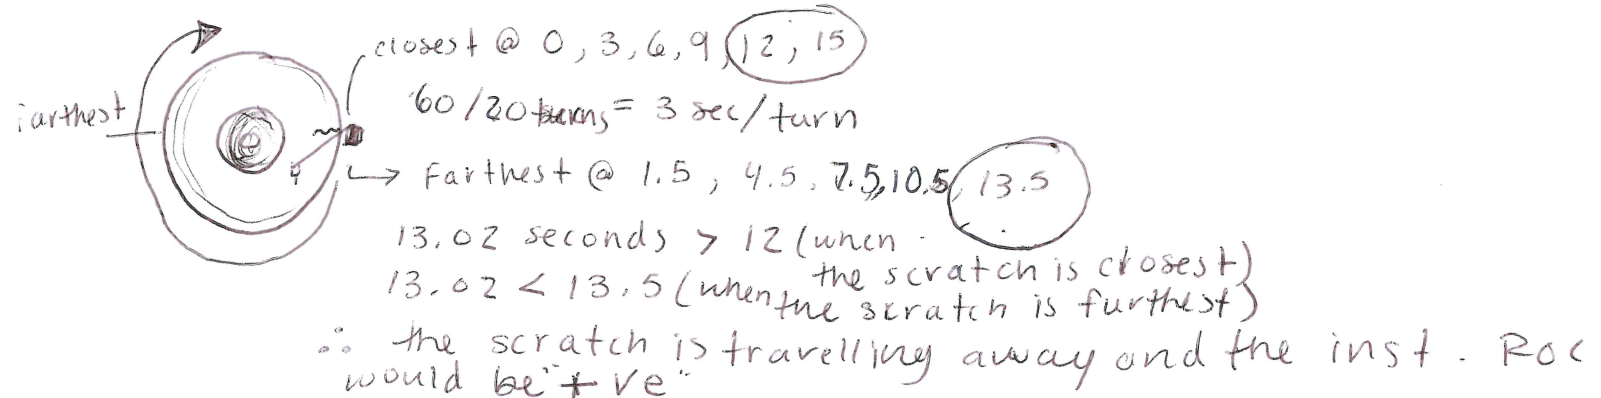 closest @ 0, 3, 6, 9, 12, 15
farthest
60/20 turns = 3 sec/turn
→ Farthest @ 1.5, 4.5, 7.5, 10.5, 13.5
13.02 seconds > 12 (when the scratch is closest)
13.02 < 13.5 (when the scratch is furthest)
∴ the scratch is travelling away and the inst. ROC
would be "+ve"